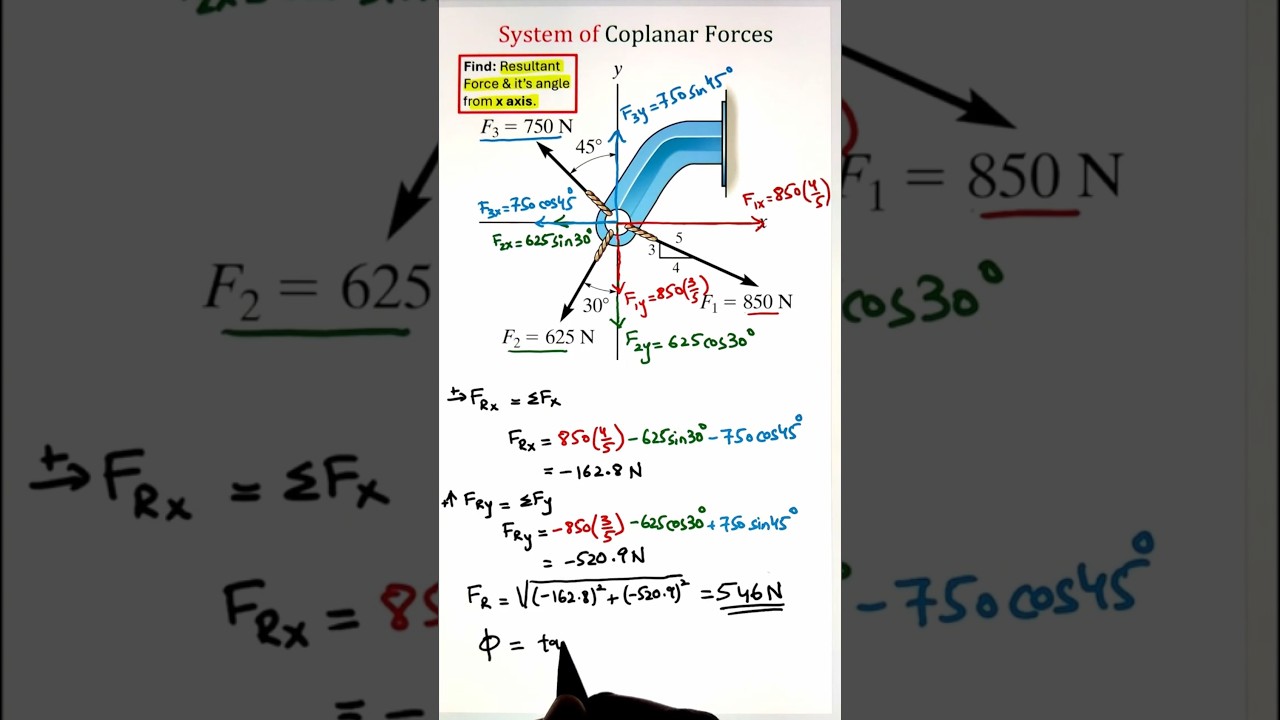 System of Coplanar Forces
Find: Resultant
Force & it's angle
from x axis.
y
F₃y = 750 sin45°
F₃ = 750 N
45°
F₁x = 850(4/5)
F₃x = 750cos45°
x
F₂x = 625sin30°
5
3
4
30°
F₁y = 850(3/5)
F₁ = 850 N
F₂ = 625 N
F₂y = 625cos30°
+→ F_Rx = ΣFx
F_Rx = 850(4/5) - 625sin30° - 750cos45°
= -162.8 N
+↑ F_Ry = ΣFy
F_Ry = -850(3/5) - 625cos30° + 750 sin45°
= -520.9 N
F_R = √(-162.8)² + (-520.9)² = 546 N
φ = ta
F₁ = 850 N
F₂ = 625
cos30°
+→ F_Rx = ΣFx
F_Rx = 85
- 750cos45°